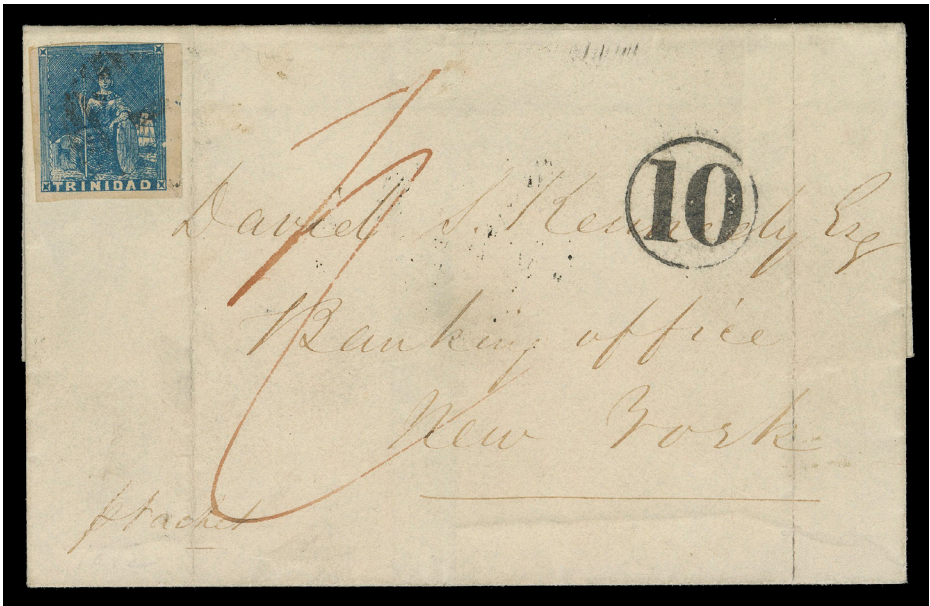 TRINIDAD
10
David S. Kennedy Esq
Banking office
New York
p packet